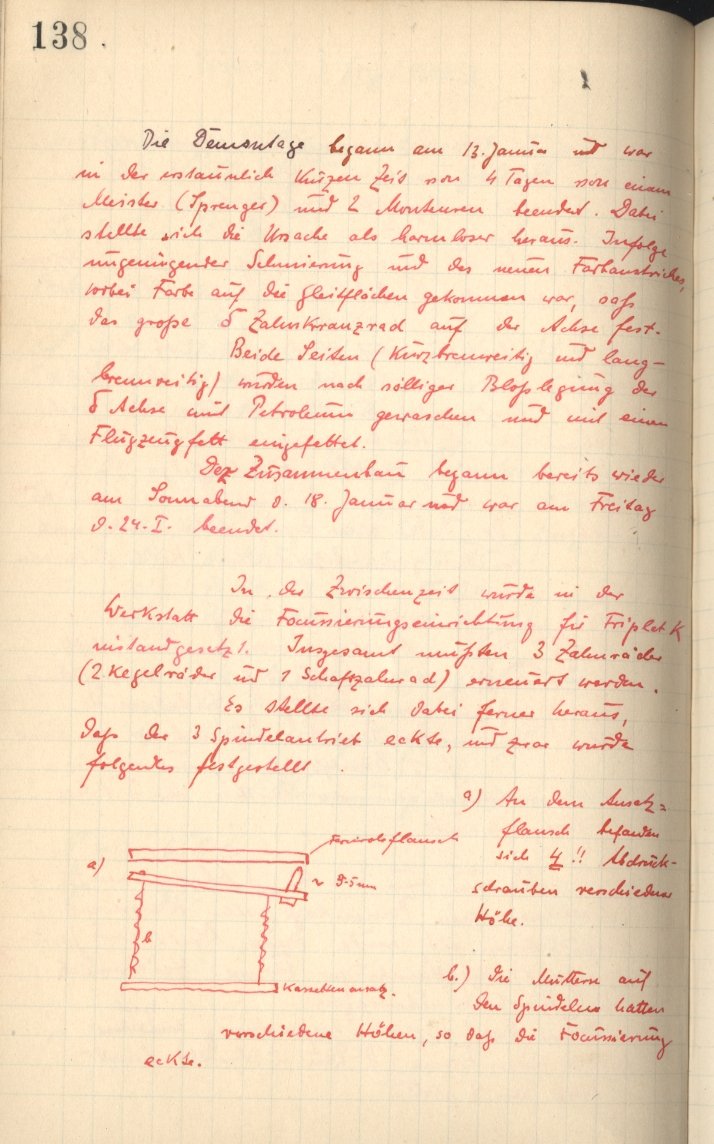 138.
Die Demontage begann am 13. Januar und war
in der erstaunlich kurzen Zeit von 4 Tagen von einem
Meister (Sprenger) und 2 Monteuren beendet. Dabei
stellte sich die Ursache als harmloser heraus. Infolge
ungenügender Schmierung und des neuen Farbanstriches,
wobei Farbe auf die Gleitflächen gekommen war, saß
das große δ Zahnkranzrad auf der Achse fest.
Beide Seiten (Kurzbrennweitig und lang-
brennweitig) wurden nach völliger Bloßlegung der
δ Achse mit Petroleum gewaschen und mit einem
Flugzeugfett eingefettet.
Der Zusammenbau begann bereits wieder
am Sonnabend d. 18. Januar und war am Freitag
d. 24. I. beendet.
In der Zwischenzeit wurde in der
Werkstatt die Focussierungseinrichtung für Triplet K
instandgesetzt. Insgesamt mußten 3 Zahnräder
(2 Kegelräder und 1 Schaftzahnrad) erneuert werden.
Es stellte sich dabei ferner heraus,
daß der 3 Spindelantrieb eckte, und zwar wurde
folgendes festgestellt
a) An dem Ansatz=
flansch befanden
sich 4 !! Abdrück-
schrauben verschiedener
Höhe.
a)
~ 3-5 mm
b
Kassettenansatz.
b.) Die Muttern auf
den Spindeln hatten
verschiedene Höhen, so daß die Focussierung
eckte.